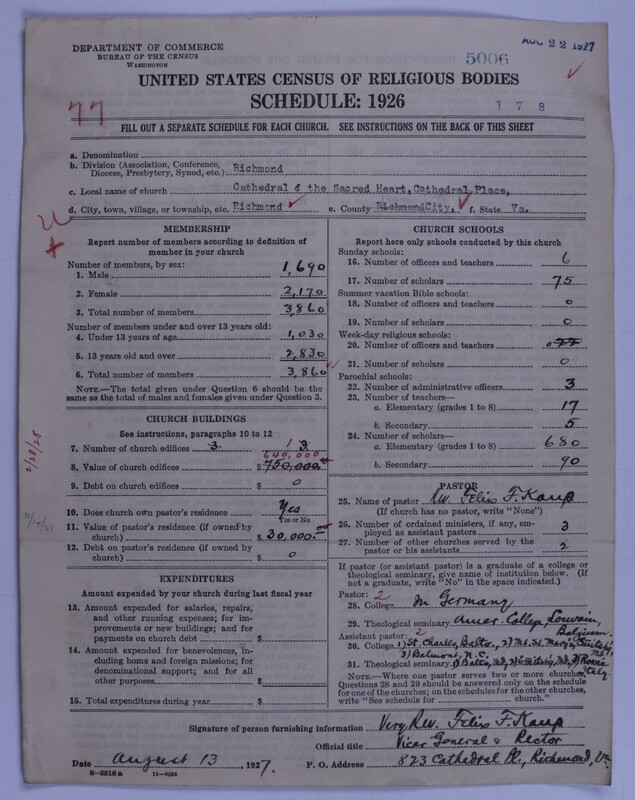 AUG 22 1927
DEPARTMENT OF COMMERCE
BUREAU OF THE CENSUS
WASHINGTON
5006
UNITED STATES CENSUS OF RELIGIOUS BODIES
SCHEDULE: 1926
77
1 7 8
FILL OUT A SEPARATE SCHEDULE FOR EACH CHURCH. SEE INSTRUCTIONS ON THE BACK OF THIS SHEET
a. Denomination
b. Division (Association, Conference, Diocese, Presbytery, Synod, etc.) Richmond
c. Local name of church Cathedral of the Sacred Heart, Cathedral Place,
d. City, town, village, or township, etc. Richmond e. County RichmondCity, f. State Va.
MEMBERSHIP
Report number of members according to definition of
member in your church
Number of members, by sex:
1. Male 1,690
2. Female 2,170
3. Total number of members 3,860
Number of members under and over 13 years old:
4. Under 13 years of age 1,030
5. 13 years old and over 2,830
6. Total number of members 3,860
NOTE.—The total given under Question 6 should be
same as the total of males and females given under Question 3.
CHURCH BUILDINGS
See instructions, paragraphs 10 to 12
7. Number of church edifices 3 1 3
640,000
8. Value of church edifices $ 750,000.00
9. Debt on church edifices $ 0
2/28/28
10. Does church own pastor's residence? Yes
Yes or No
11. Value of pastor's residence (if owned by
church) $ 30,000.00
12. Debt on pastor's residence (if owned by
church) $ 0
EXPENDITURES
Amount expended by your church during last fiscal year
13. Amount expended for salaries, repairs,
and other running expenses; for im-
provements or new buildings; and for
payments on church debt $
14. Amount expended for benevolences, in-
cluding home and foreign missions; for
denominational support; and for all
other purposes $
15. Total expenditures during year $
CHURCH SCHOOLS
Report here only schools conducted by this church
Sunday schools:
16. Number of officers and teachers 6
17. Number of scholars 75
Summer vacation Bible schools:
18. Number of officers and teachers 0
19. Number of scholars 0
Week-day religious schools:
20. Number of officers and teachers
21. Number of scholars 0
Parochial schools:
22. Number of administrative officers 3
23. Number of teachers—
a. Elementary (grades 1 to 8) 17
b. Secondary 5
24. Number of scholars—
a. Elementary (grades 1 to 8) 680
b. Secondary 90
PASTOR
25. Name of pastor Rev. Felix F. Kaup
(If church has no pastor, write "None")
26. Number of ordained ministers, if any, em-
ployed as assistant pastors 3
27. Number of other churches served by the
pastor or his assistants 2
If pastor (or assistant pastor) is a graduate of a college or
theological seminary, give name of institution below. (If
not a graduate, write "No" in the space indicated.)
Pastor: 2
28. College In Germany
29. Theological seminary Amer. College, Louvain,
Belgium.
Assistant pastor: 2
30. College 1) St. Charles, Balto., 2) Mt. St. Mary's,
3) Belmont, N.C.
31. Theological seminary
NOTE.—Where one pastor serves two or more churches,
Questions 28 and 29 should be answered only on the schedule
for one of the churches; on the schedules for the other churches,
write "See schedule for church."
Signature of person furnishing information Very Rev. Felix F. Kaup
Official title Vicar General & Rector
Date August 13, 1927. P. O. Address 823 Cathedral Pl., Richmond, Va
8-5316a 11-9084